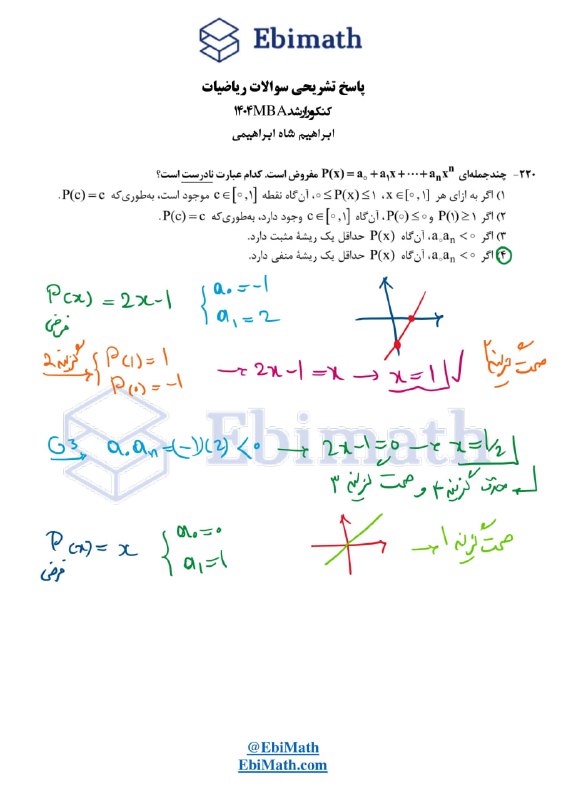 Ebimath
پاسخ تشریحی سوالات ریاضیات
کنکور ارشد MBA ۱۴۰۴
ابراهیم شاه ابراهیمی
۲۲۰- چندجمله‌ای P(x) = a₀ + a₁x + ⋯ + aₙxⁿ مفروض است. کدام عبارت نادرست است؟
۱) اگر به ازای هر x ∈ [۰,۱]، ۰ ≤ P(x) ≤ ۱، آن‌گاه نقطه c ∈ [۰,۱] موجود است، به‌طوری‌که P(c) = c.
۲) اگر P(۱) ≥ ۱ و P(۰) ≤ ۰، آن‌گاه c ∈ [۰,۱] وجود دارد، به‌طوری‌که P(c) = c.
۳) اگر a₀aₙ < ۰، آن‌گاه P(x) حداقل یک ریشهٔ مثبت دارد.
۴) اگر a₀aₙ < ۰، آن‌گاه P(x) حداقل یک ریشهٔ منفی دارد.
P(x) = 2x-1 { a₀ = -1
a₁ = 2
فرضی
گزینه 2 → { P(1) = 1
P(0) = -1
→ 2x-1 = x → x = 1 ✓ صحت گزینه ۲
Ebimath
G3 → a₀aₙ = (-1)(2) < 0 → 2x-1 = 0 → x = 1/2
→ حذف گزینه ۴ و صحت گزینه ۳
P(x) = x { a₀ = 0
a₁ = 1
فرضی
→ صحت گزینه ۱
@EbiMath
EbiMath.com